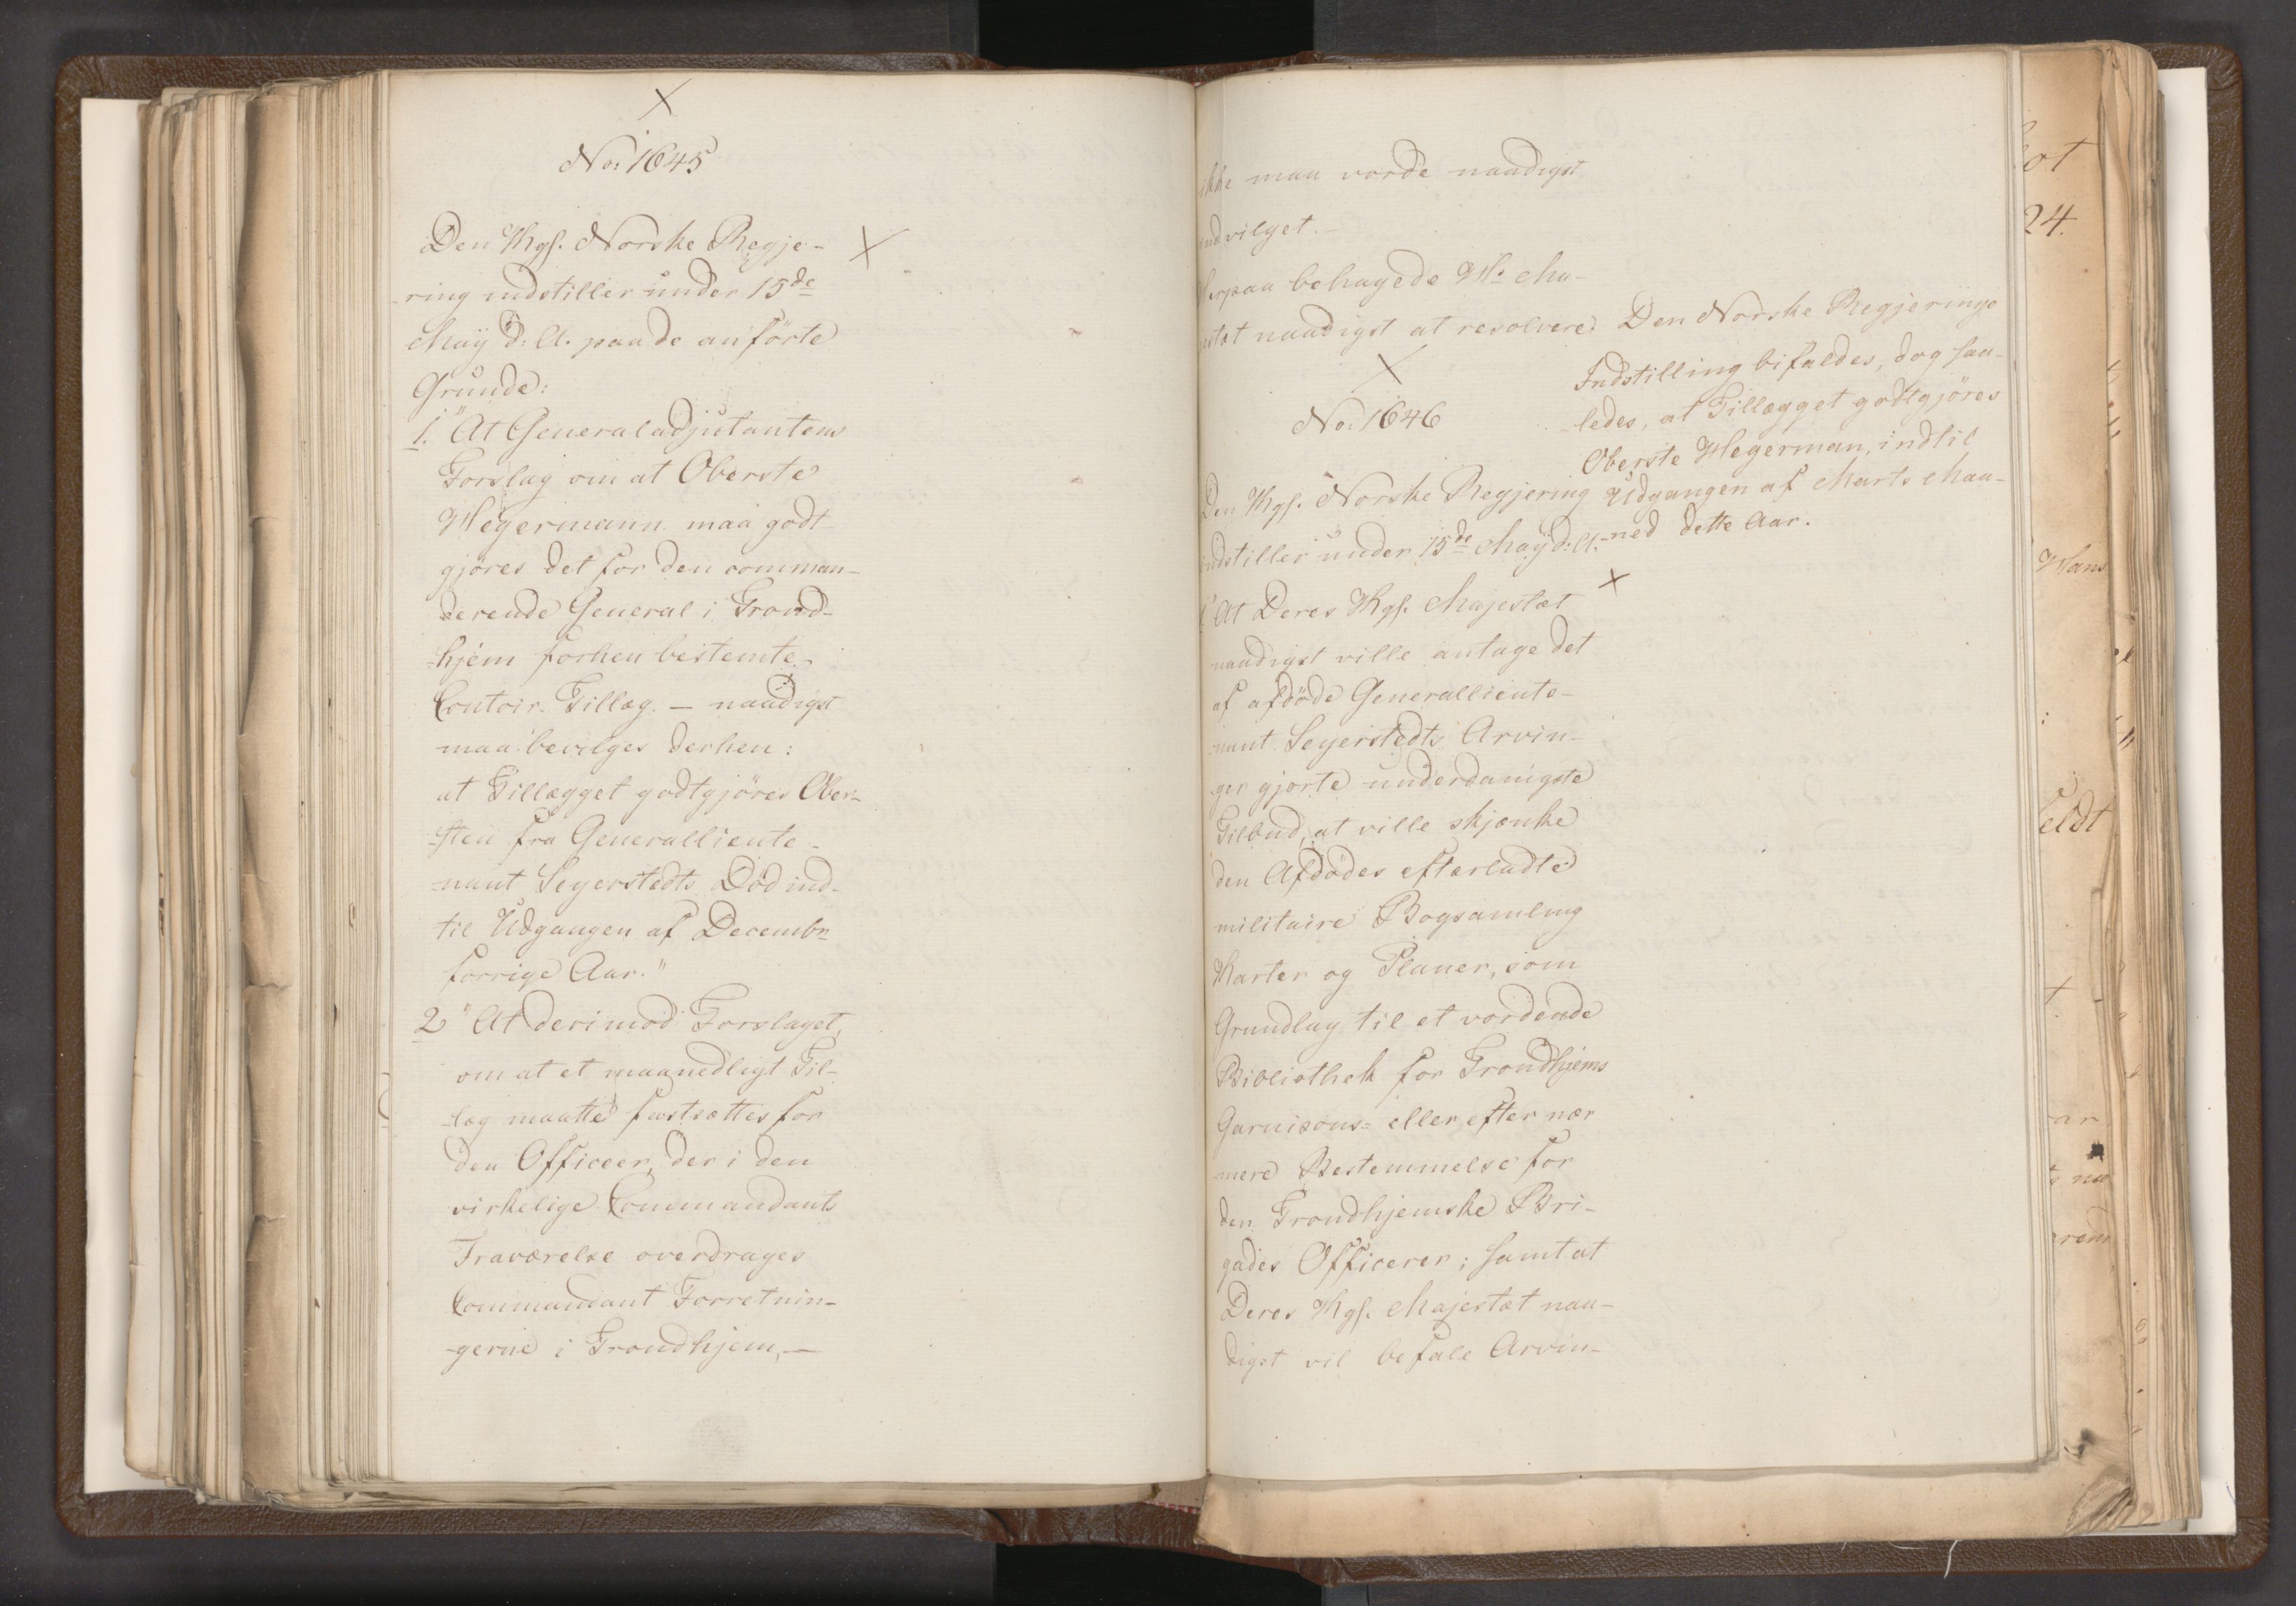 No: 1645
Den Kgl. Norske Regje-
-ring indstiller under 15de
May d: A. paa de anförte
Grunde:
1. "At Generaladjutantens
Forslag om at Oberste
Hegermann maa godt
gjöres det for den comman-
derende General i Trond-
-hjem forhen bestemte
Contoir-Tillæg. — naadigst
maa bevilges derhen:
at Tillægget godtgjöres Ober-
-sten fra Generallieute-
-nant Seyerstedts Död ind-
til Udgangen af Decembr
forrige Aar."
2 "At derimod Forslaget,
om at et maanedligt Til-
-læg maatte fastsættes for
den Officeer, der i den
virkelige Commandants
Fraværelse overdrages
Commandant Forretnin-
-gerne i Trondhjem, —
ikke maa vorde naadigst
indvilget. —
Herpaa behagede H: Ma-
jestæt naadigst at resolvere
Den Norske Regjerings
Indstilling bifaldes, dog saa-
-ledes, at Tillægget godtgjöres
Oberste Hegerman, indtil
Udgangen af Marts Maa-
-ned dette Aar.
No: 1646
Den Kgl. Norske Regjering
indstiller under 15de May d: A.
"At Deres Kgl. Majestæt
naadigst ville antage det
af afdöde Generallieute-
-nant Seyerstedts Arvin-
ger gjorte underdanigste
Tilbud, at ville skjænke
den Afdödes efterladte
militaire Bogsamling
Karter og Planer, som
Grundlag til et vordende
Bibliothek for Trondhjems
Garnisons- eller efter nær
-mere Bestemmelse for
den Trondhjemske Bri-
gades Officerer; samt at
Deres Kgl. Majestæt naa-
digst vil befale Arvin-
24.
Hans